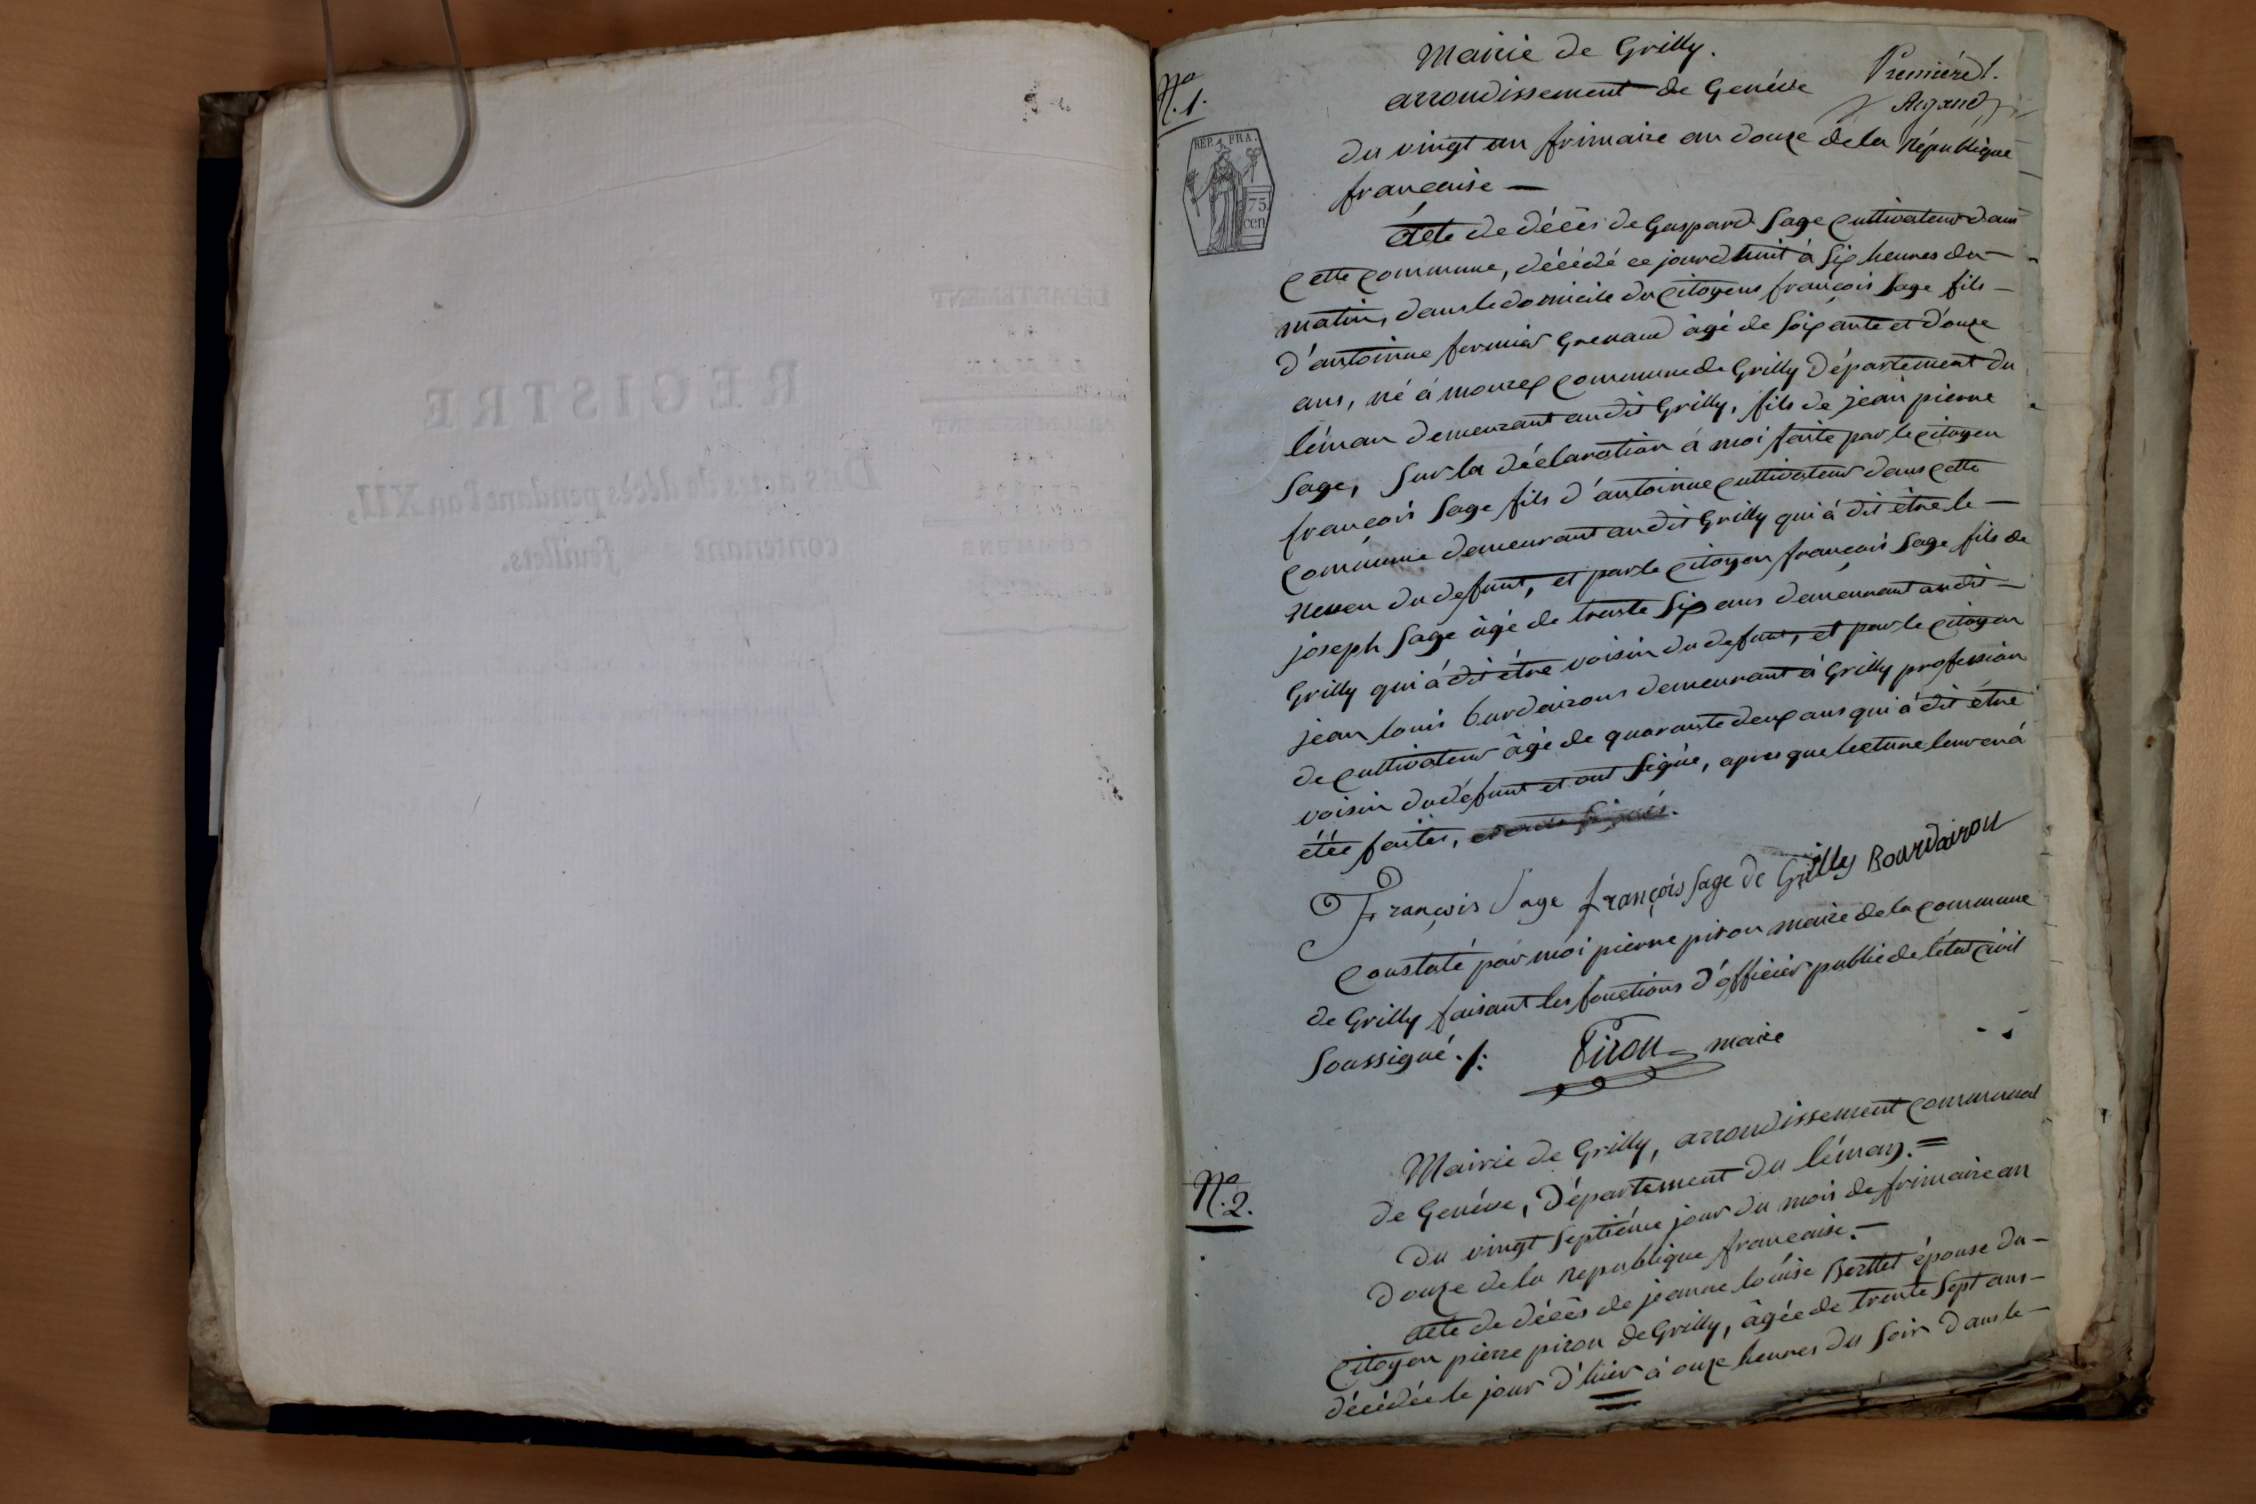 Mairie de Grilly.
N.° 1.
arrondissement de Genéve
Premiére f.
Argand
REP. FRA.
75.
cen
du vingt un frimaire an douze de la République
francaise —
Acte de décès de Gaspard Sage cultivateur dans
cette commune, décédé ce jourd'huit à six heures du —
matin, dans le domicile du citoyens françois Sage fils —
d'antoinne fermier Grenaud âgé de soixante et d'ouze
ans, né à mourex commune de Grilly Département du
léman demeurant audit Grilly, fils de jean pierre
Sage, Sur la déclaration à moi faite par le citoyen
françois Sage fils d'antoinne cultivateur dans cette
commune demeurant audit Grilly qui à dit être le —
neveu du defunt, et par le citoyen françois Sage fils de
joseph Sage âgé de trente six ans demeurant audit —
Grilly qui à dit être voisin du defunt, et par le citoyen
jean louis burdairons demeurant à Grilly profession
de cultivateur âgé de quarante deux ans qui à dit être
voisin du défunt et ont signé, apres que lecture leur en à
étée faites,
François Sage françois Sage de Grilly Bourdairon
Constaté par moi pierre piron maire de la commune
de Grilly faisant les fonctions d'officier public de l'état civil
Soussigné ./.
Piron maire
N.° 2.
Mairie de Grilly, arrondissement communal
de Genéve, Département du léman. =
Du vingt septiéme jour du mois de frimaire an
douze de la republique francaise. —
Acte de décès de jeanne loüise Berttet épouse du —
citoyen pierre piron de Grilly, âgée de trente sept ans —
décédée le jour d'hier à onze heures du soir dans le —
REGISTRE
Des actes de décès pendant l'an XII,
contenant feuillets.
DÉPARTEMENT
LÉMAN
ARRONDISSEMENT
COMMUNE